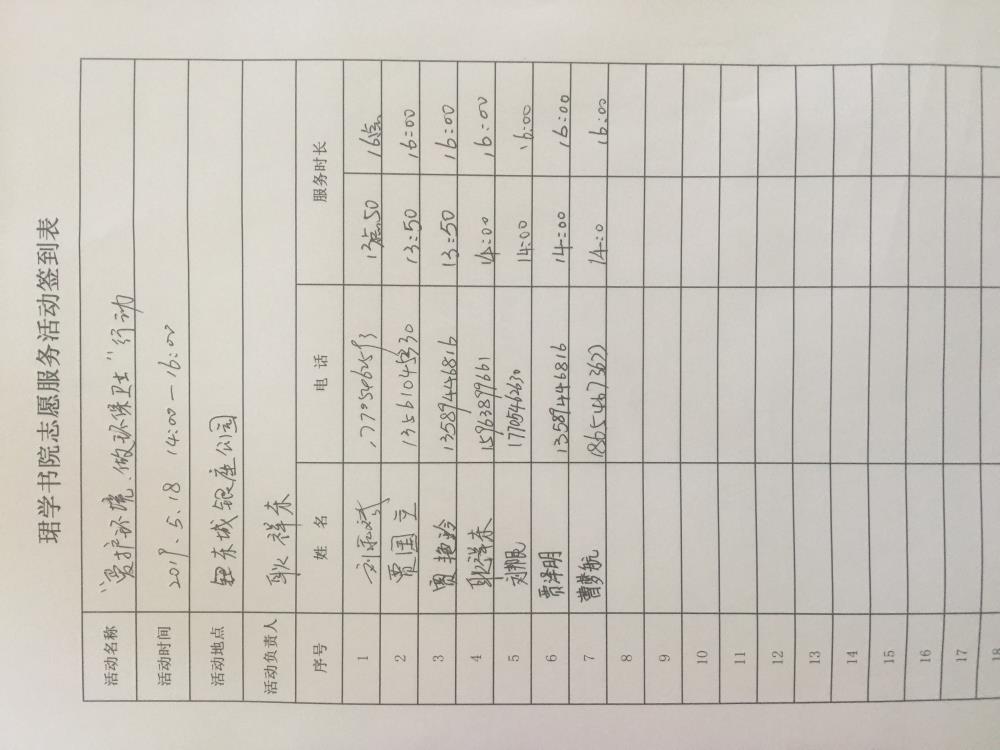 珺学书院志愿服务活动签到表
活动名称 "爱护环境、做环保卫士"行动
活动时间 2019.5.18 14:00—16:00
活动地点 东城银座公园
活动负责人 耿祥东
序号 姓 名 电 话 服务时长
1 13点50 16点
2 贾国立 13561045330 13:50 16:00
3 贾艳玲 13589446816 13:50 16:00
4 耿祥东 15963899661 14:00 16:00
5 17705462630 14:00 16:00
6 贾泽明 13589446816 14:00 16:00
7 曹梦航 18654673677 14:0 16:00
8
9
10
11
12
13
14
15
16
17
18